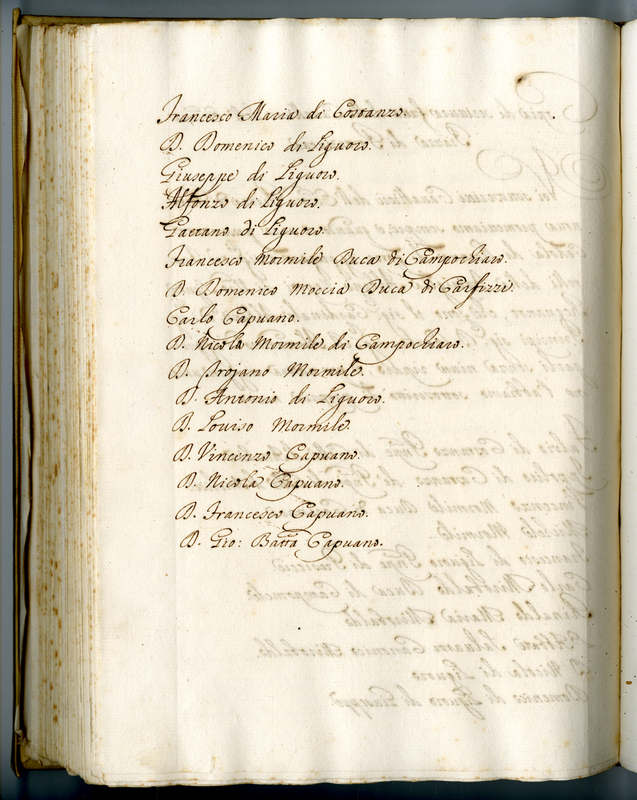 Francesco Maria di Costanzo.
D. Domenico di Liguoro.
Giuseppe di Liguoro.
Alfonzo di Liguoro.
Gaetano di Liguoro.
Francesco Mormile Duca di Campochiaro.
D. Domenico Moccia Duca di Carfizzi.
Carlo Capuano.
D. Nicola Mormile di Campochiaro.
D. Trojano Mormile.
D. Antonio di Liguoro.
D. Louiso Mormile.
D. Vincenzo Capuano.
D. Nicola Capuano.
D. Francesco Capuano.
D. Gio: Batta Capuano.